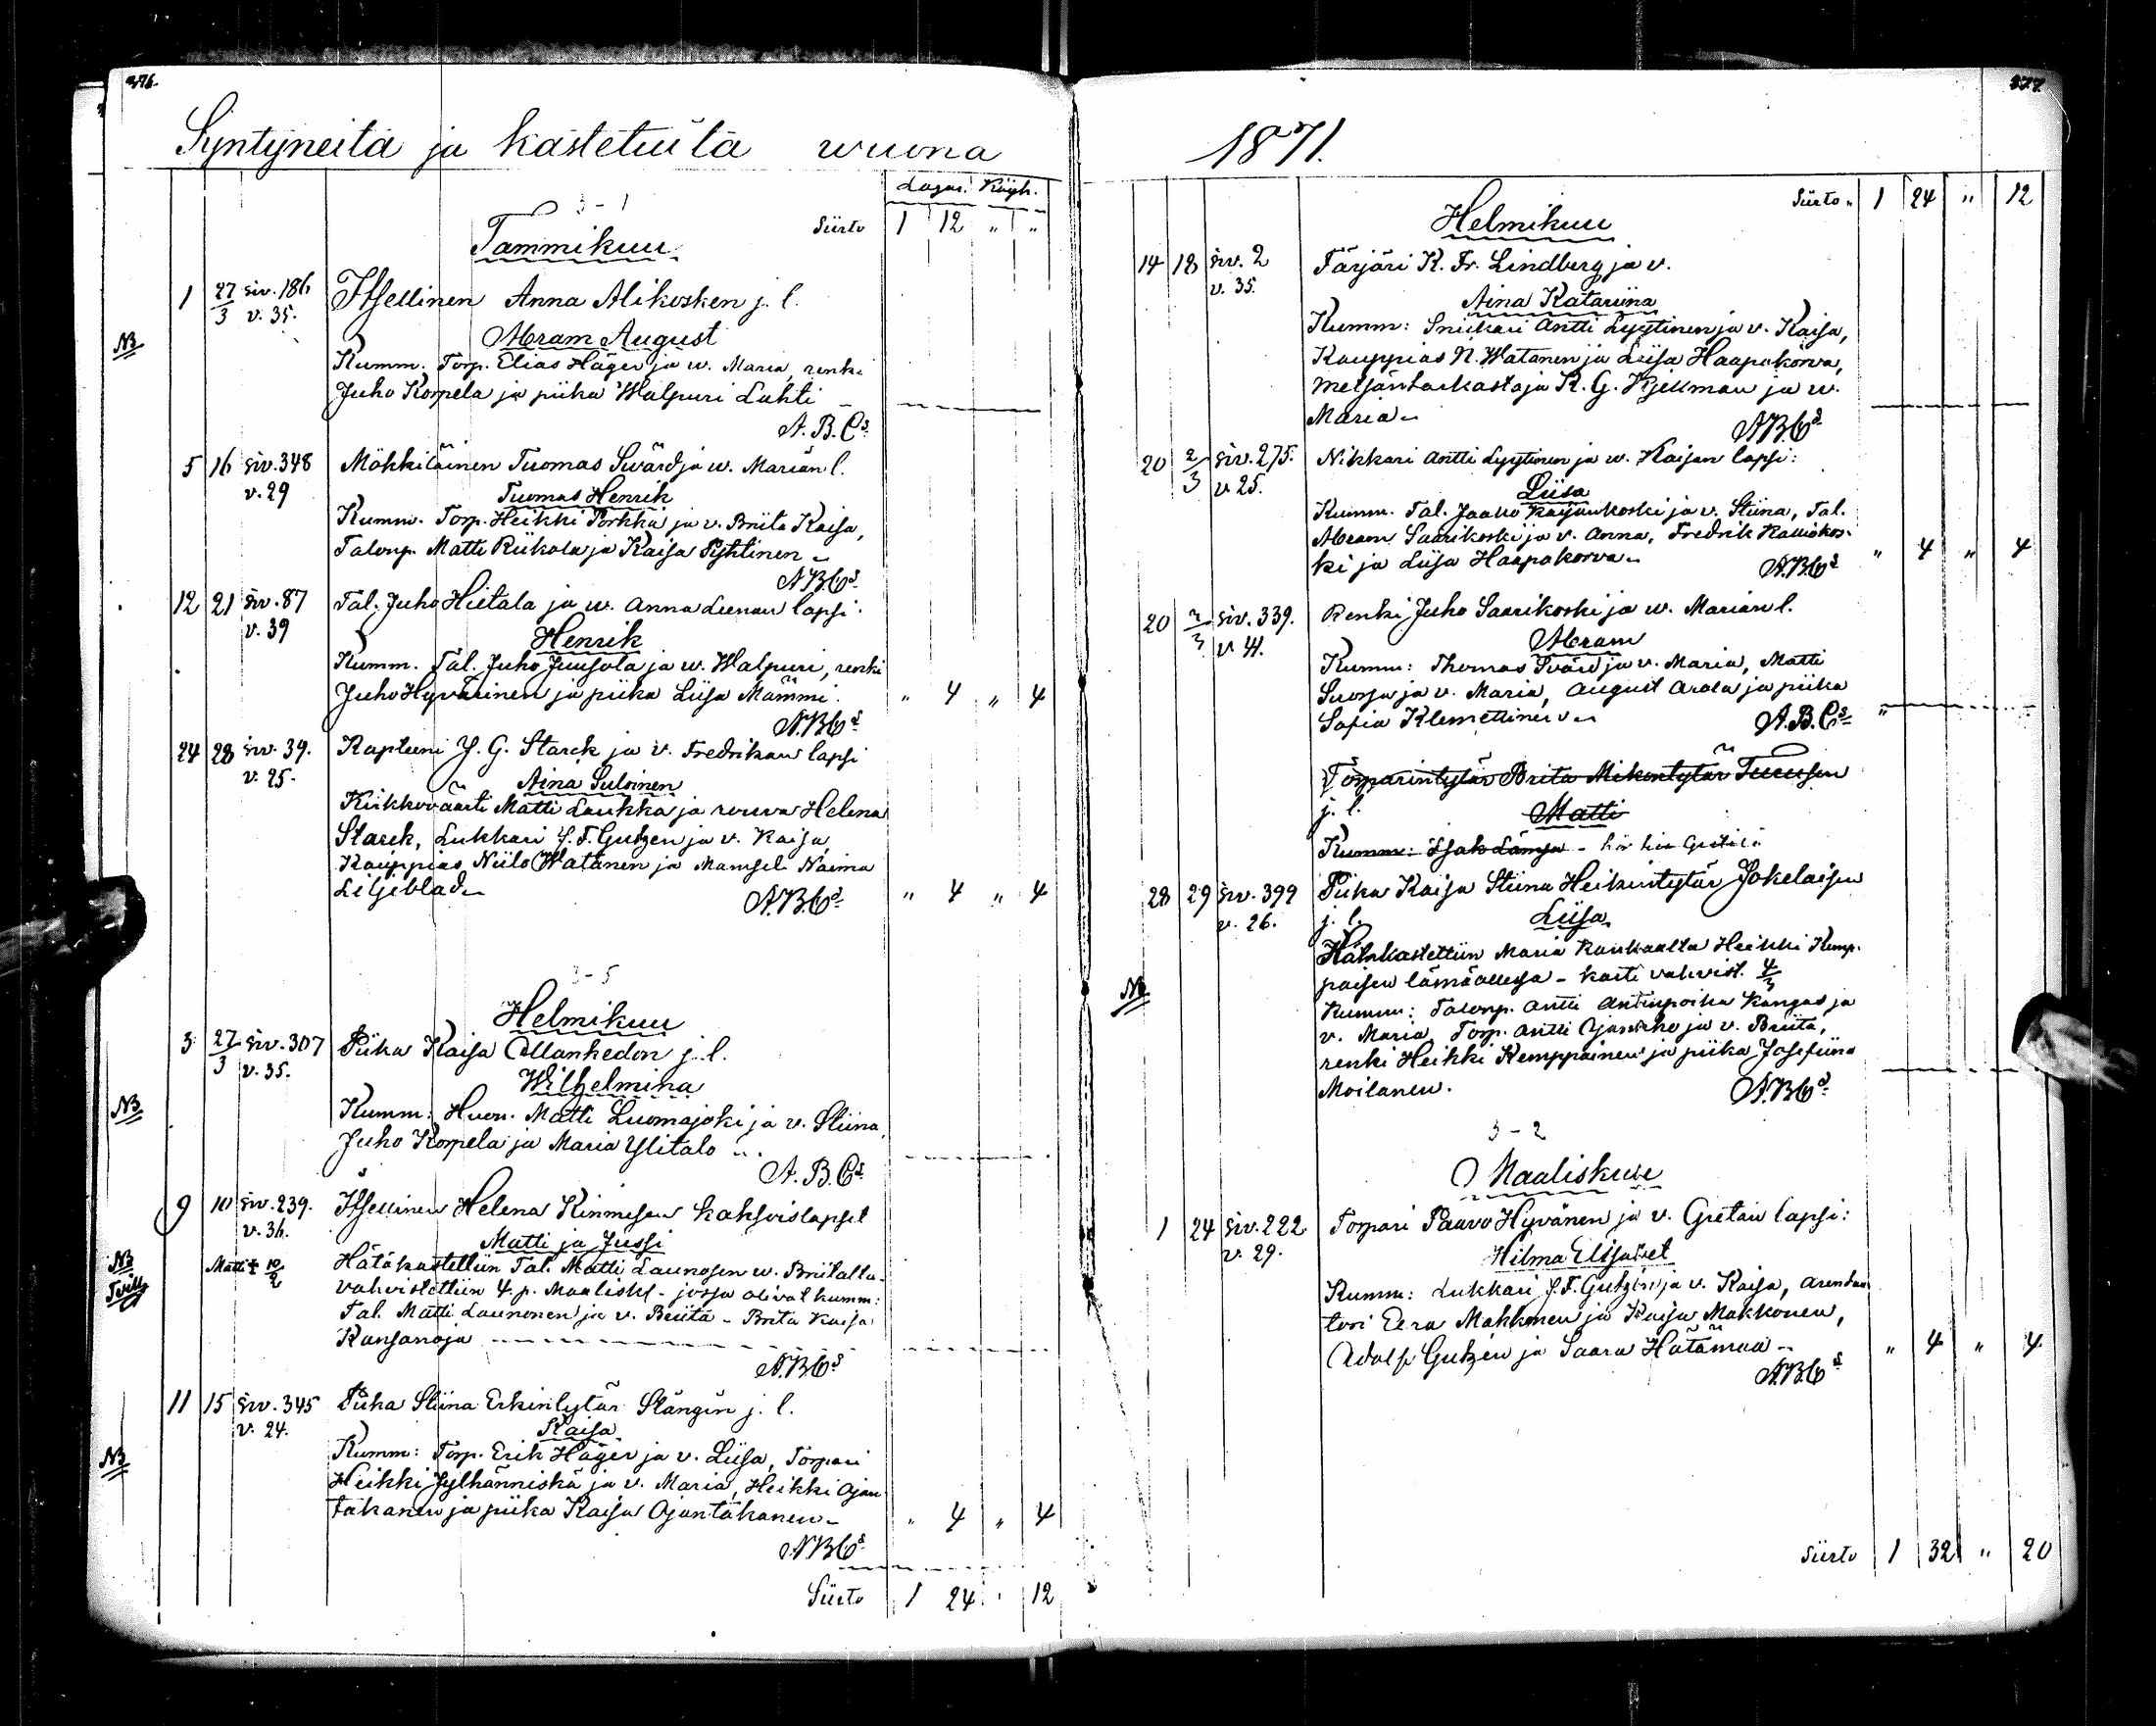 376.
Syntyneitä ja kastetuita wuona
Lagar. Köyh.
3-1
Siirto 1 12 " "
Tammikuu
1 27/3 siv. 186 Itsellinen Anna Alikosken j. l.
v. 35.
NB Abram August
Kumm. Torp. Elias Häger ja w. Maria, renki
Juho Korpela ja piika Walpuri Lahti –
A. B. Cs
5 16 siv. 348 Mökkiläinen Tuomas Swärd ja w. Marian l.
v. 29
Tuomas Henrik
Kumm. Torp. Heikki Porkka ja v. Briita Kaisa,
Talonp. Matti Riikola ja Kaisa Pyhtinen –
A.B.Cs
12 21 siv. 87 Tal. Juho Hietala ja w. Anna Leenan lapsi.
v. 39
Henrik
Kumm. Tal. Juho Juusola ja w. Walpuri, renki
Juho Hyvärinen ja piika Liisa Mämmi. " 4 " 4
A.B.Cs
24 28 siv. 39. Kapteeni J. G. Starck ja v. Fredrikan lapsi
v. 25.
Aina Suloinen
Kirkkoväärti Matti Laukka ja rouva Helena
Starck, Lukkari J. F. Gutzen ja v. Kaisa,
Kauppias Niilo Watanen ja Mamsel Naima
Liljeblad – " 4 " 4
A.B.Cs
3-5
Helmikuu
3 27/3 siv. 307 Piika Kaisa Allanhedon j. l.
v. 35.
Wilhelmina
NB Kumm: Huon. Matti Luomajoki ja v. Stiina,
Juho Korpela ja Maria Ylitalo
A. B. Cs
9 10 siv. 239. Itsellinen Helena Kinnusen kaksoislapset
v. 36.
Matti ja Jussi
NB Matti † 10/2 Hätäkastettiin Tal. Matti Launosen w. Briitalta.
Tvill vahvistettiin 4. p. Maalisk. – jossa olivat kumm:
Tal. Matti Launonen ja v. Briita – Brita Kaisa
Kansanoja
A.B.Cs
11 15 siv. 345 Piika Stiina Erkintytär Stångin j. l.
v. 24.
Kaisa
NB Kumm: Torp. Erik Häger ja v. Liisa, Torpari
Heikki Jylhänniska ja v. Maria, Heikki Ojan
takanen ja piika Kaisa Ojantakanen – " 4 " 4
A.B.Cs
Siirto 1 24 " 12
377.
1871.
Siirto " 1 24 " 12
Helmikuu
14 18 siv. 2 Färjäri K. Fr. Lindberg ja v.
v. 35.
Aina Katariina
Kumm: Snikkari Antti Lyytinen ja v. Kaisa,
Kauppias N. Watanen ja Liisa Haapakorva,
metsäntarkastaja K. G. Kjellman ja w.
Maria –
A.B.Cs
20 2/3 siv. 275. Nikkari Antti Lyytinen ja w. Kaisan lapsi:
v. 25.
Liisa
Kumm. Tal. Jaako Karjankoski ja v. Stiina, Tal.
Abram Saarikoski ja v. Anna, Fredrik Kalliokos-
ki ja Liisa Haapakorva – " 4 " 4
A.B.Cs
20 2/3 siv. 339. Renki Juho Saarikoski ja w. Marian l.
v. 41.
Abram
Kumm: Thomas Svärd ja v. Maria, Matti
Suorsa ja v. Maria, August Arola ja piika
Sofia Klemettinen –
A. B. Cs
Torparintytär Brita Mikontytär Turusen
j. l.
Matti
Kumm: Isak Lämsä –
28 29 siv. 399 Piika Kaisa Stiina Heikintytär Jokelaisen
v. 26. j. l.
Liisa
Hätäkastettiin Maria Kankaalta Heikki Kemp-
paisen läsnäollessa – kasti vahvist. 4/3
NB Kumm: Talonp. Antti Antinpoika Kangas ja
v. Maria, Torp. Antti ja v. Briita,
renki Heikki Kemppainen ja piika Josefiina
Moilanen.
A.B.Cs
3-2
Maaliskuu
1 24 siv. 222 Torpari Paavo Hyvänen ja v. Gretan lapsi:
v. 29.
Hilma Elisabet
Kumm: Lukkari J. F. Gutzén ja v. Kaisa, arendaa
tori Eera Makkonen ja Kaisa Makkonen,
Adolf Gutzén ja Saara Hätämaa – " 4 " 4
A.B.Cs
Siirto 1 32 " 20